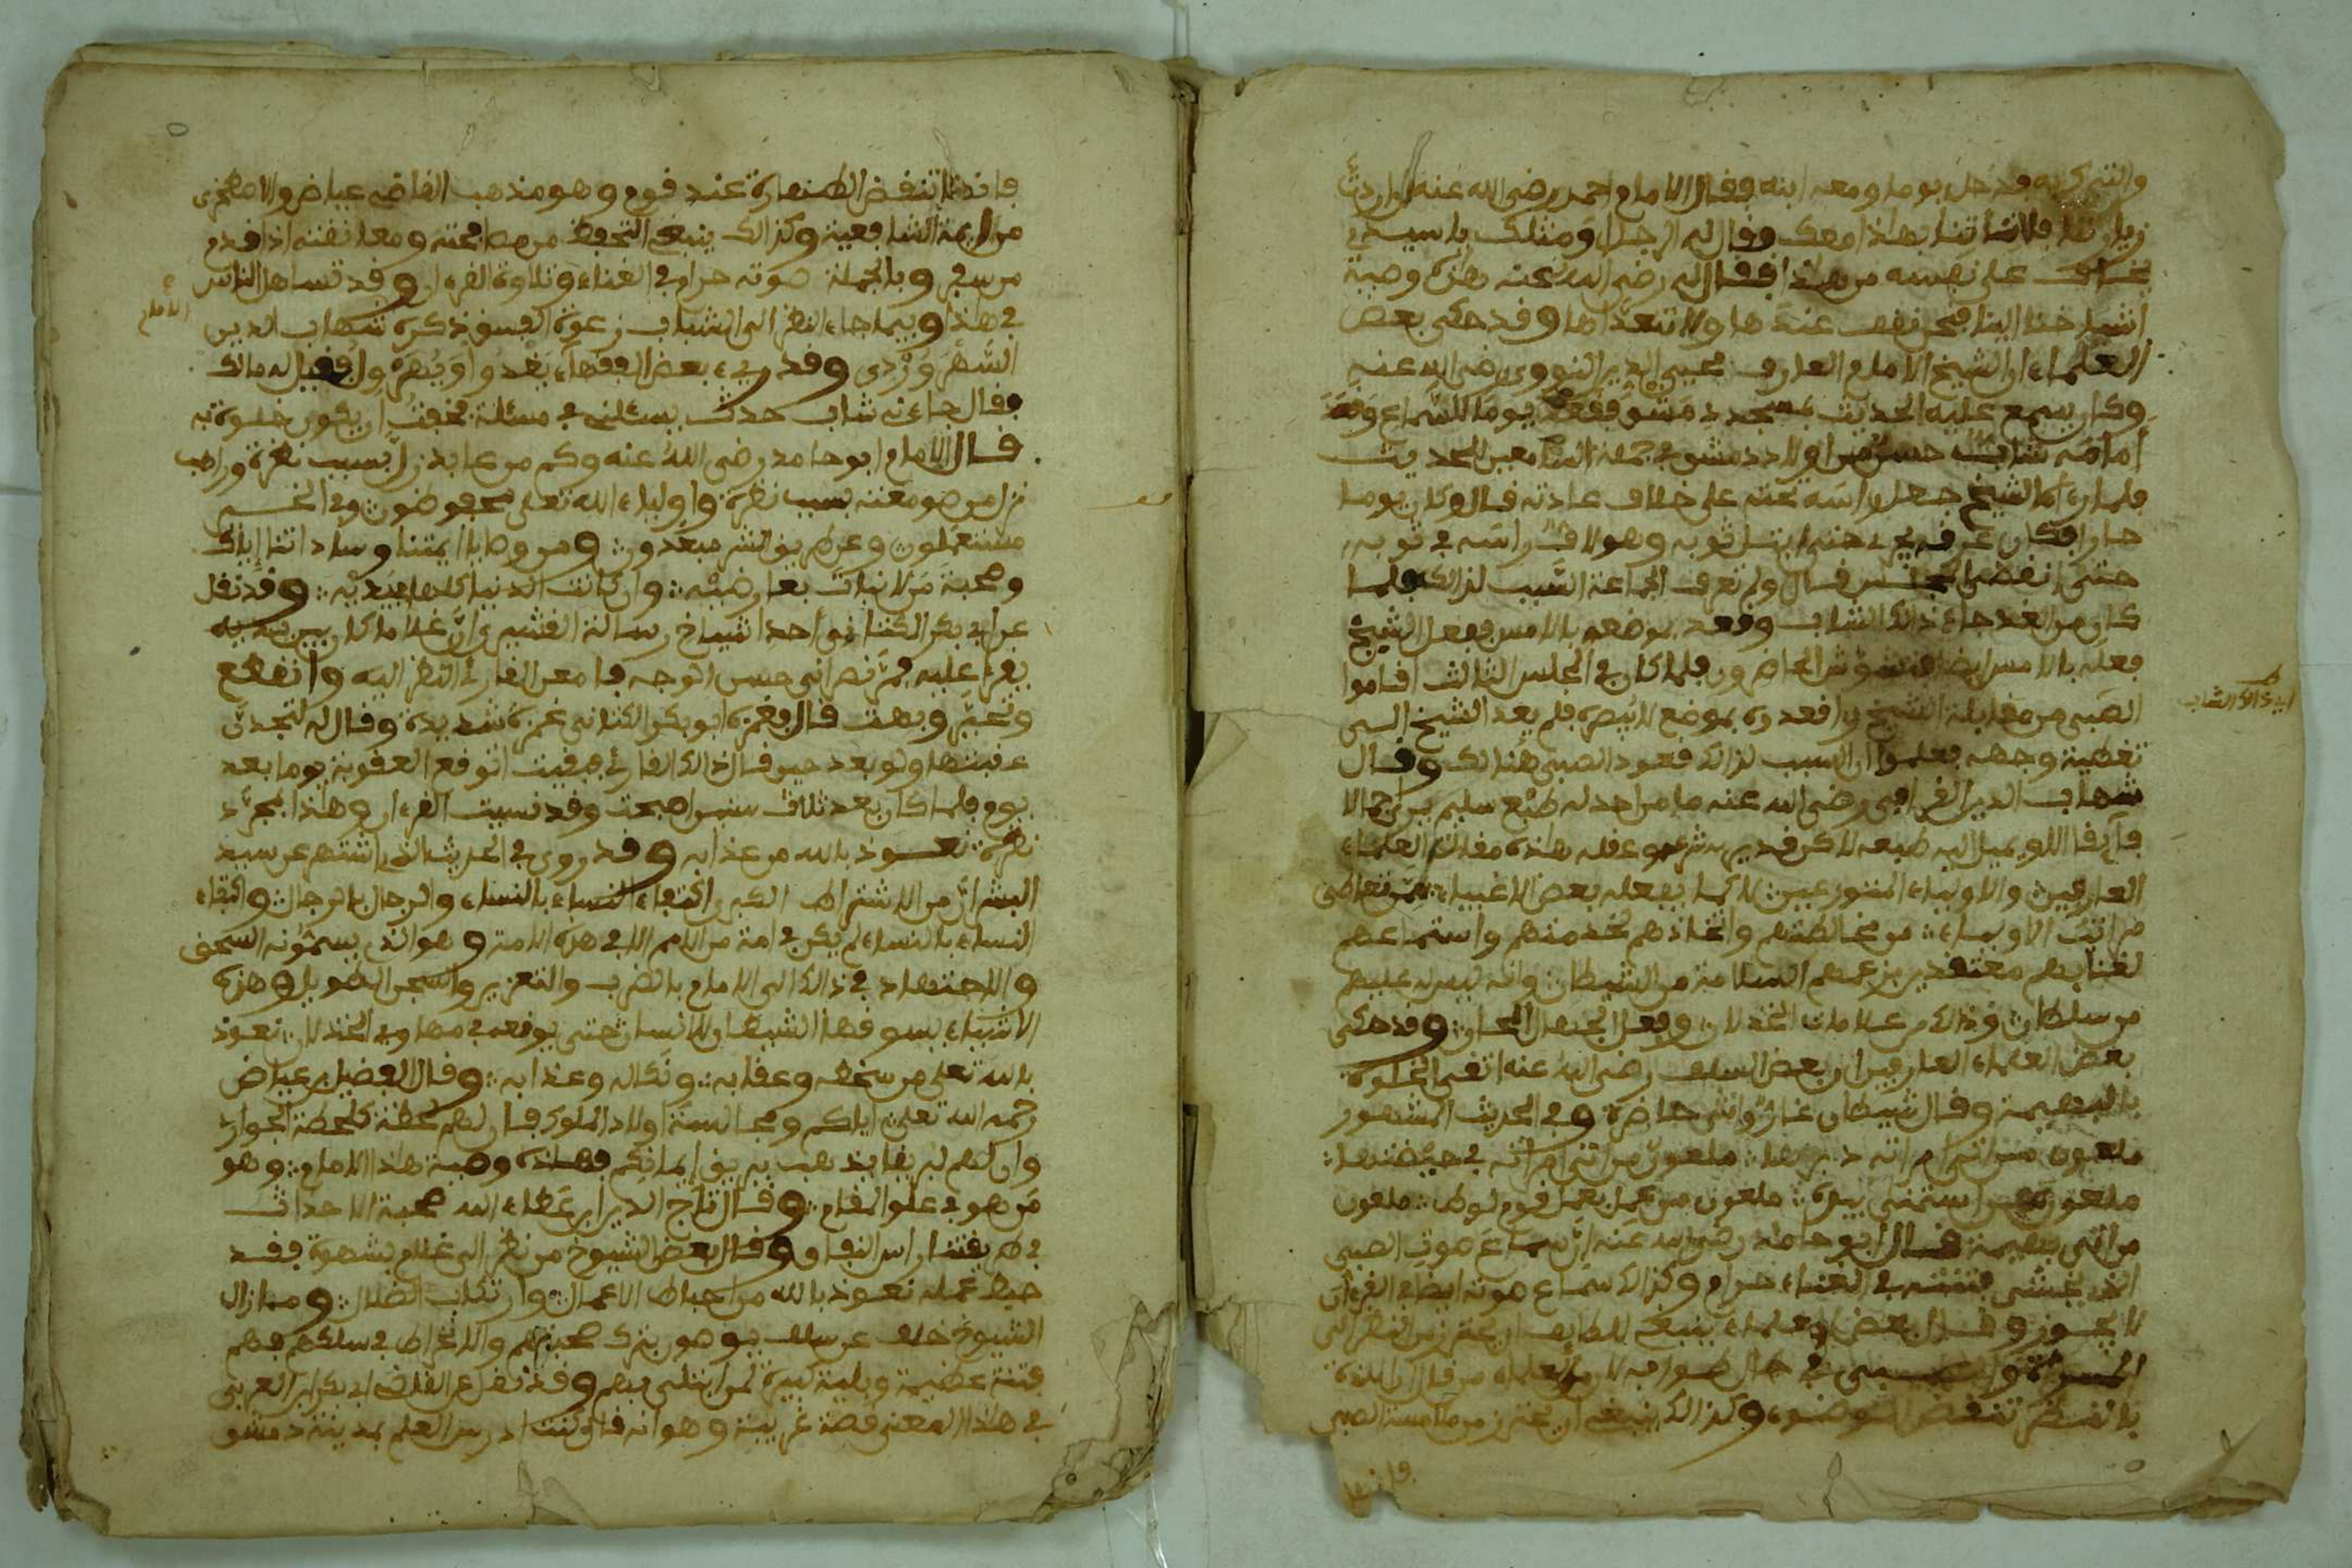 والتبرك به فدخل يوما ومعه ابنه فقال الامام احمد رضي الله عنه ان اردت
زيارتنا فلا تاتنا بهذا معك وقال له الرجل ومثلك يا سيدي
يخاف على نفسه من هذا فقال له رضي الله عنه هذه وصية
اشياخنا الينا فنحن نقف عندها ولا نتعداها وقد حكى بعض
العلماء ان الشيخ الامام العارف محيي الدين النووي رضي الله عنه
وكان يسمع عليه الحديث بمسجد دمشق فقعد يوما للسماع وقعد
امامه شاب حسن من اولاد دمشق في جملة السامعين للحديث
فلما رءاه الشيخ جعل راسه تحته على خلاف عادته قال وكان يوما
حارا فكان عرقه يجري حتى ابتل ثوبه وهو لاف راسه في ثوبه
حتى انقضى المجلس قال ولم تعرف الجماعة السبب لذالك فلما
كان من الغد جاء ذالك الشاب وقعد بموضعه بالامس ففعل الشيخ
فعله بالامس ايضا فتشوش الحاضرون فلما كان في المجلس الثالث اقاموا
الصبي من مقابلة الشيخ واقعدوه بموضع لا يبصره فلم يعد الشيخ الى
اي ذالك الشاب
تغطية وجهه فعلموا ان السبب لذالك قعود الصبي هنالك وقال
شهاب الدين القرافي رضي الله عنه ما من احد له طبع سليم يرى جمالا
فائقا الا ويميل اليه طبعه لاكن قد يريه شرعه وعقله هذه مقالة العلماء
العارفين والاولياء المتورعين لا كما يفعله بعض الاغبياء ممن تعاطى
مراتب الاولياء من مخالطتهم واتخاذهم لخدمتهم واستماعهم
لغنائهم معتقدين بزعمهم السلامة من الشيطان وانه ليس له عليهم
من سلطان وذالك من علامات الخذلان وفعل الجهال المجان وقد حكى
بعض العلماء العارفين ان بعض السلف رضي الله عنه اتقى الخلوة
بالبهيمة وقال شيطان غار وانثى حاضرة وفي الحديث المشهور
ملعون من اتى امراته في دبرها ملعون من اتى امراته في حيضتها
ملعون من استمنى بيده ملعون من عمل بعمل قوم لوط ملعون
من اتى بهيمة قال ابو حامد رضي الله عنه ان سماع صوت الصبي
الذي تخشى فتنته في الغناء حرام وكذالك سماع صوته ايضا في القرءان
لا يجوز وقال بعض العلماء ينبغي للطائف ان يحترز من النظر الى
المراة والصبي في حال طوافه لان من العلماء من قال ان اللذة
بالنظر تنقض الوضوء وكذالك ينبغي ان يحترز من ملامسة الصبي
فانها
فانها تنقض الطهارة عند قوم وهو مذهب القاضي عياض والاصطخري
من ائمة الشافعية وكذالك ينبغي التحفظ من مصافحته ومعانقته اذا قدم
من سفر وبالجملة صوته حرام في الغناء وتلاوة القرءان وقد تساهل الناس
في هذا وفيما جاء النظر الى الشباب زعوة الفسوق ذكره شهاب الدين
الامام
السهروردي وقد رءي بعض الفقهاء يغدوا ويهرول فقيل له مالك
فقال جاءني شاب حدث يسئلني في مسئلة فخفت ان يكون خلوة به
قال الامام ابو حامد رضي الله عنه وكم من عابد زل بسبب نظرة وراهب
نزل من صومعته بسبب نظرة واولياء الله تعلى محفوظون وفي الخير
مستعملون وعن طريق الشر مبعدون ومن وصايا ايمتنا وساداتنا اياك
وصحبة من لا نبات بعارضيه وان كانت الدنيا كلها بيديه وقد نقل
عن ابي بكر الكتاني احد اشياخ رسالة القشيري ان غلاما كان بين يديه
يقرء عليه فمر نصراني حسن الوجه فامعن القارئ النظر اليه وانقطع
وتحير وبهت قال فغمزه ابو بكر الكتاني غمزة شديدة وقال له لتجدن
عقبتها ولو بعد حين قال ذالك القارئ فبقيت اتوقع العقوبة يوما بعد
يوم فلما كان بعد ثلاث سنين اصبحت وقد نسيت القرءان وهذا بمجرد
نظرة نعوذ بالله من عذابه وقد روي في الحديث الذي اشتهر عن سيد
البشر ان من الاشتراط الكبرى اكتفاء النساء بالنساء والرجال بالرجال واكتفاء
النساء بالنساء لم يكن في امة من الامم الا في هذه الامة وهو الذي يسمونه السحق
والاجتهاد في ذالك الى الامام بالضرب والتعزير والسجن الطويل وهذه
الاشياء يسوقها الشيطان للانسان حتى يوقعه في مهاوي الخذلان نعوذ
بالله تعلى من سخطه وعقابه ونكاله وعذابه وقال الفضيل بن عياض
رحمه الله تعلى اياكم ومجالسة اولاد الملوك فان لهم لحظة كلحظة الجوار
وان لهم لبريقا يذهب ببريق ايمانكم فهاذه وصية هذا الامام وهو
من هو في علو المقام وقال تاج الدين ابن عطاء الله صحبة الاحداث
في طريقتنا راس النفاق وقال بعض الشيوخ من نظر الى غلام بشهوة فقد
حبط عمله نعوذ بالله من احباط الاعمال وارتكاب الضلال وما زال
الشيوخ خلف عن سلف يوصون بترك صحبتهم والانخراط في سلكهم فهم
فتنة عظيمة وبلية كبيرة لمن ابتلي بهم وقد نقل عن القاضي ابي بكر ابن العربي
في هذا المعنى قصة غريبة وهو انه قال كنت ادرس العلم بمدينة دمشق